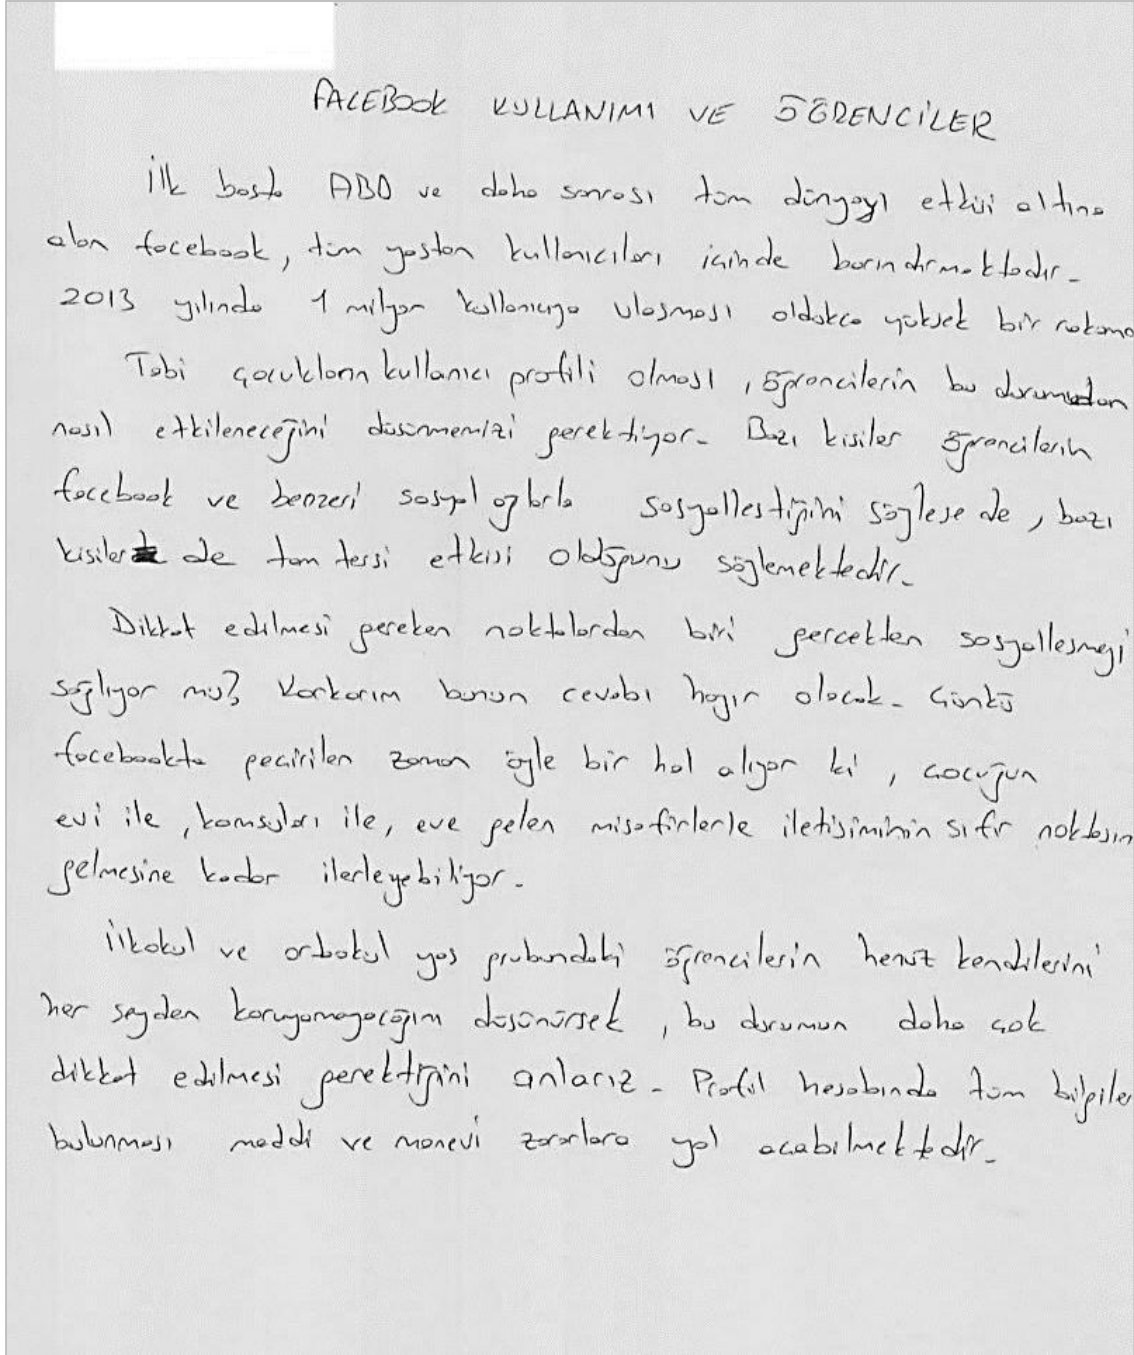 FACEBOOK KULLANIMI VE ÖĞRENCİLER
İlk başta ABD ve daha sonrası tüm dünyayı etkisi altına
alan facebook, tüm yaştan kullanıcıları içinde barındırmaktadır.
2013 yılında 1 milyar kullanıcıya ulaşması oldukça yüksek bir rakama
Tabi çocukların kullanıcı profili olması, öğrencilerin bu durumdan
nasıl etkileneceğini düşünmemizi gerektiyor. Bazı kişiler öğrencilerin
facebook ve benzeri sosyal ağlarla sosyalleştiğini söylese de, bazı
kişiler de tam tersi etkisi olduğunu söylemektedir.
Dikkat edilmesi gereken noktalardan biri gerçekten sosyalleşmeyi
sağlıyor mu? Korkarım bunun cevabı hayır olacak. Çünkü
facebookta geçirilen zaman öyle bir hal alıyor ki, çocuğun
evi ile, komşuları ile, eve gelen misafirlerle iletişiminin sıfır noktasın
gelmesine kadar ilerleyebiliyor.
İlkokul ve ortaokul yaş grubundaki öğrencilerin henüz kendilerini
her şeyden koruyamayacağım düşünürsek, bu durumun daha çok
dikkat edilmesi gerektiğini anlarız. Profil hesabında tüm bilgiler
bulunması maddi ve manevi zararlara yol açabilmektedir.